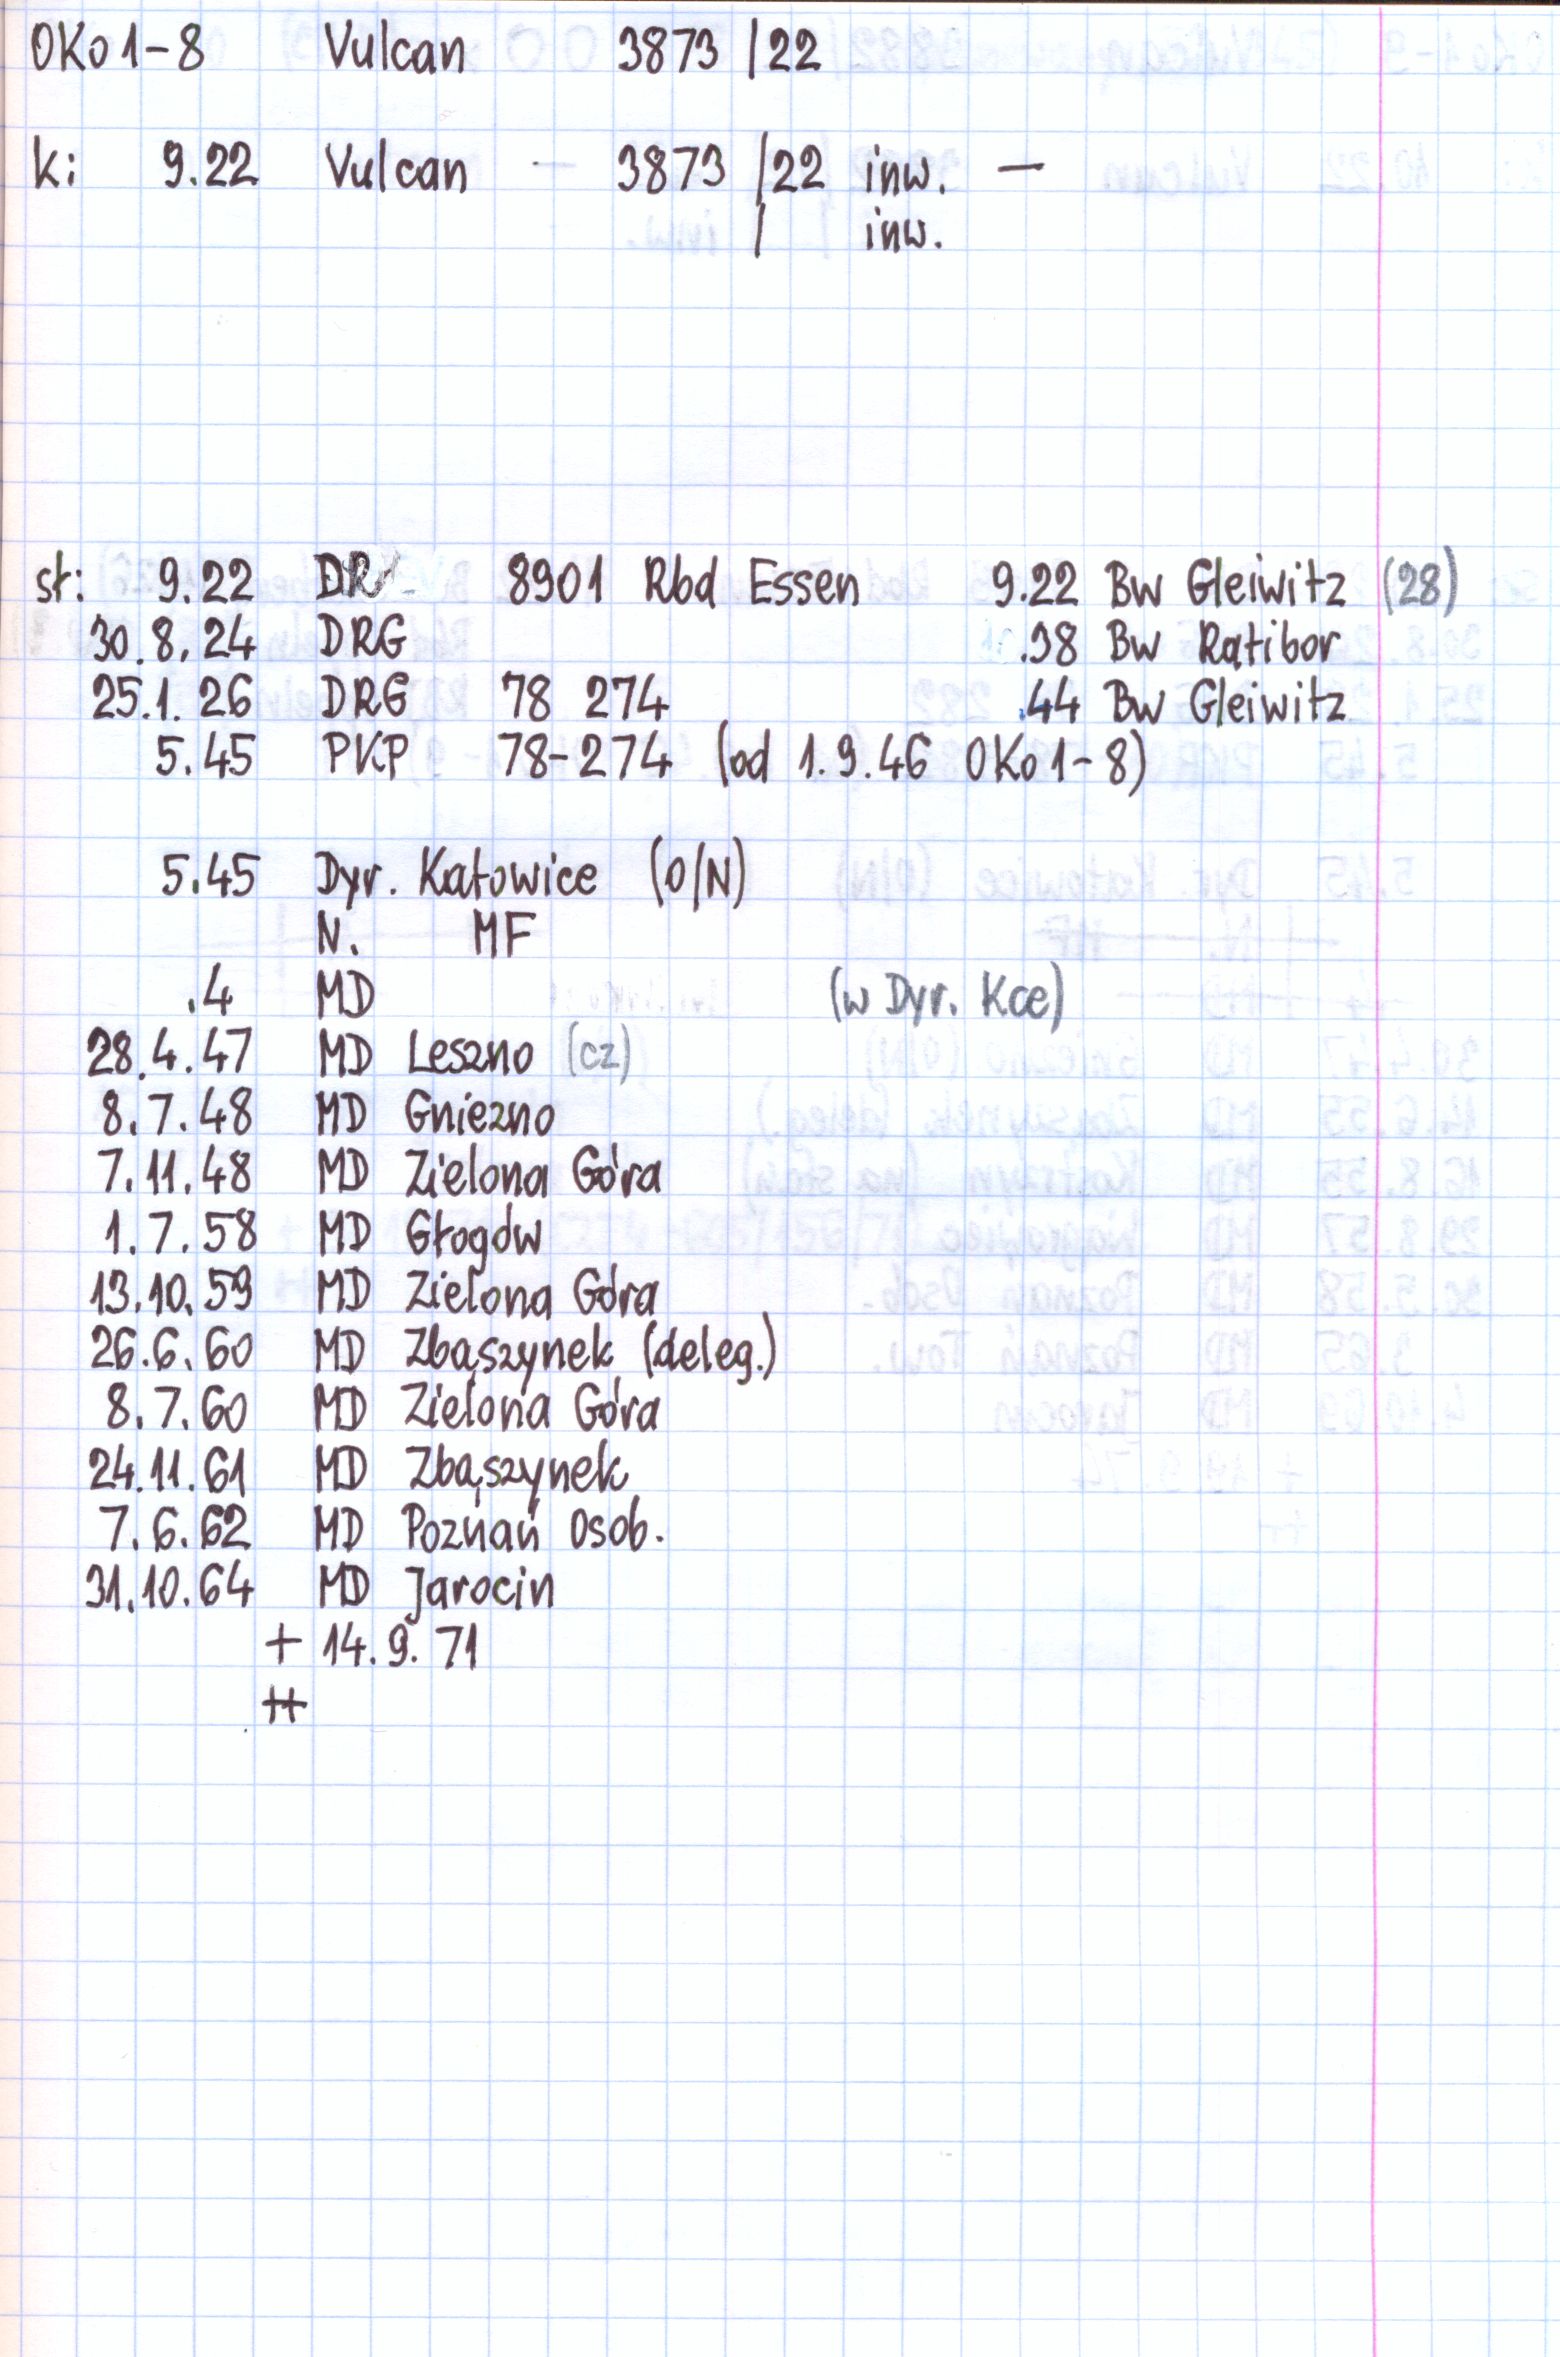 OKo1-8 Vulcan 3873 /22
k: 9.22 Vulcan - 3873 /22 inw. -
/ inw.
st: 9.22 DR 8901 Rbd Essen 9.22 Bw Gleiwitz (28)
30.8.24 DRG .38 Bw Ratibor
25.1.26 DRG 78 274 .44 Bw Gleiwitz
5.45 PKP 78-274 (od 1.9.46 OKo1-8)
5.45 Dyr. Katowice (O/N)
N. MF
.4 MD (w Dyr. Kce)
28.4.47 MD Leszno (cz)
8.7.48 MD Gniezno
7.11.48 MD Zielona Góra
1.7.58 MD Głogów
13.10.59 MD Zielona Góra
26.6.60 MD Zbąszynek (deleg.)
8.7.60 MD Zielona Góra
24.11.61 MD Zbąszynek
7.6.62 MD Poznań Osob.
31.10.64 MD Jarocin
+ 14.9.71
++